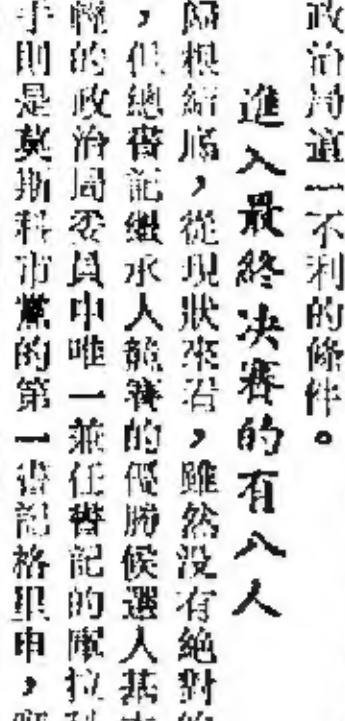 政治局這一不利的條件。
進入最終決賽的有八人
歸根結底，從現狀來看，雖然沒有絕對
，但總書記繼承人競賽的優勝候選人基
輕的政治局委員中唯一兼任書記的庫拉科
手則是莫斯科市黨的第一書記格里申，